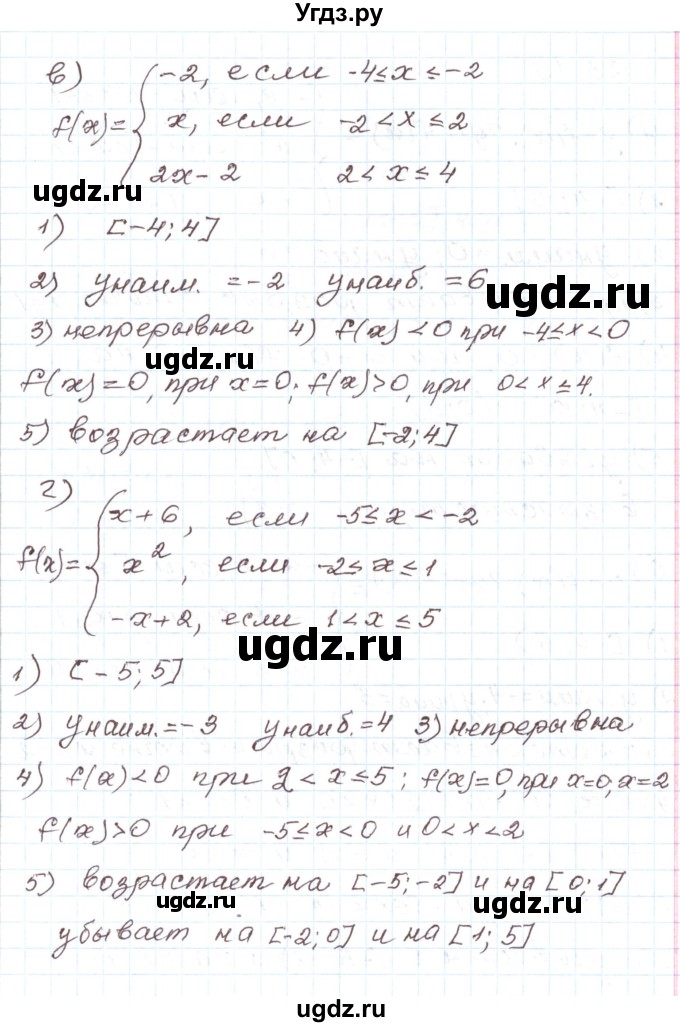 Угдз.ру
в)
f(x)= { -2, если -4≤x≤-2
x, если -2<x≤2
2x-2 2<x≤4
ugdz.ru
1) [-4;4]
2) yнаим. =-2 yнаиб. =6
ugdz.ru
3) непрерывна 4) f(x)<0 при -4≤x<0
ugdz.ru
f(x)=0, при x=0; f(x)>0, при 0<x≤4.
5) возрастает на [-2;4]
ugdz.ru
г)
f(x)= { x+6, если -5≤x<-2
x², если -2≤x≤1
-x+2, если 1<x≤5
ugdz.ru
1) [-5;5]
2) yнаим.=-3 yнаиб.=4 3) непрерывна
ugdz.ru
4) f(x)<0 при 2<x≤5; f(x)=0, при x=0, x=2
f(x)>0 при -5≤x<0 и 0<x<2
5) возрастает на [-5;-2] и на [0;1]
ugdz.ru
ugdz.ru
убывает на [-2;0] и на [1;5]
ugdz.ru